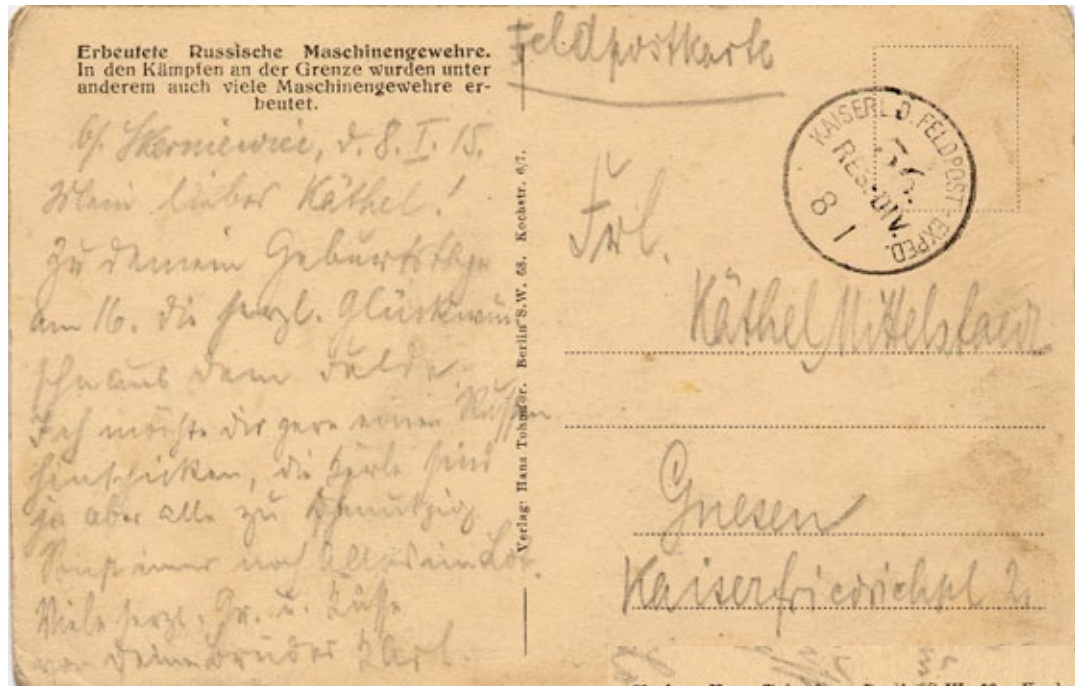 Erbeutete Russische Maschinengewehre.
In den Kämpfen an der Grenze wurden unter
anderem auch viele Maschinengewehre er-
beutet.
b/ Skerniewice, d. 8. I. 15.
Mein liebes Käthel!
Zu deinem Geburtstage
am 16. die herzl. Glückwün
sche aus dem Felde.
Ich möchte dir gern einen Russen
hinschicken, die Kerle sind
ja aber alle zu schmutzig.
Sonst immer noch Alles im Lot.
Viele herzl. Gr. u. Küsse
von deinem Bruder Karl.
Verlag: Hans Tohmfor. Berlin S.W. 68. Kochstr. 6/7.
Feldpostkarte
KAISERL. D. FELDPOST-EXPED.
36.
RES.-DIV.
8 1
Frl.
Käthel Mittelstaedt
Gnesen
Kaiserfriedrichpl 2,